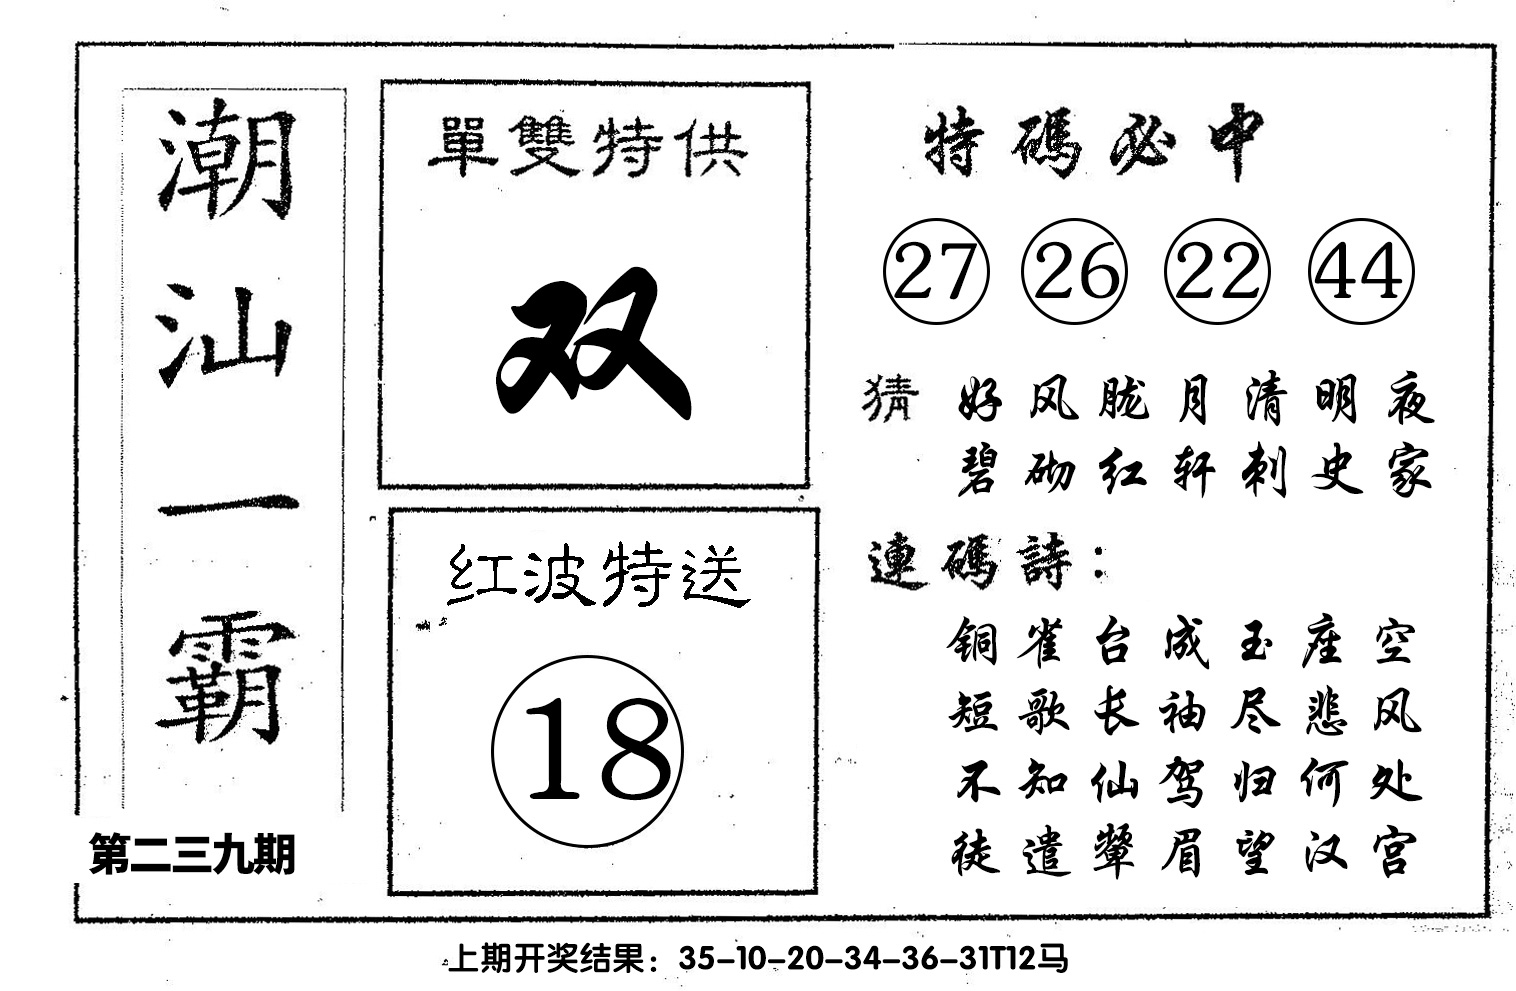 潮汕一霸
第二三九期
單雙特供
双
红波特送
18
特碼必中
27 26 22 44
猜 好风胧月清明夜
碧砌红轩刺史家
連碼詩：
铜雀台成玉座空
短歌长袖尽悲风
不知仙驾归何处
徒遣颦眉望汉宫
上期开奖结果：35-10-20-34-36-31T12马